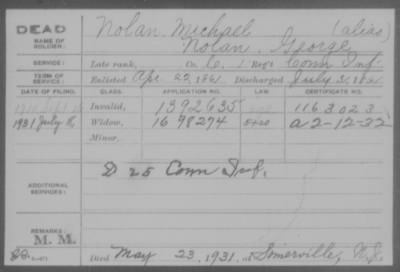 DEAD
NAME OF SOLDIER:
Nolan, Michael (alias)
Nolan, George
SERVICE: Late rank, Co. C, 1 Reg't Conn Inf.
TERM OF SERVICE: Enlisted Apr. 22, 1861 Discharged July 31, 1861
DATE OF FILING. CLASS. APPLICATION NO. LAW. CERTIFICATE NO.
Invalid, 1392635 1163023
1931 July 8, Widow, 1698274 a 2-12-32
Minor,
D 25 Conn Inf.
ADDITIONAL SERVICES:
REMARKS:
M. M.
Died May 23, 1931, at Somerville, N.J.